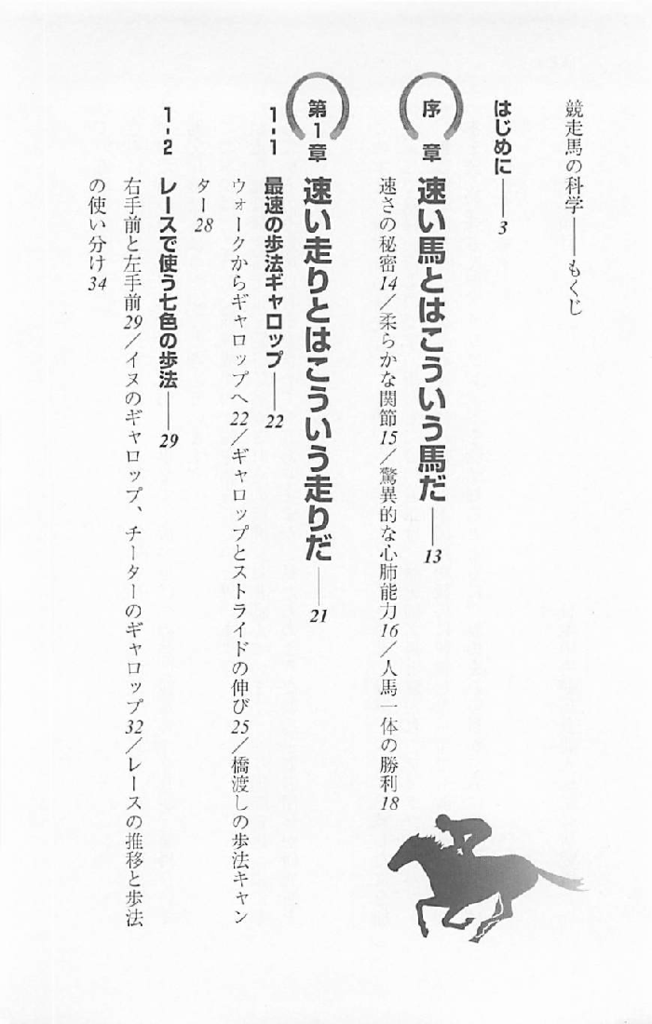 競走馬の科学――もくじ
はじめに――3
序章 速い馬とはこういう馬だ――13
速さの秘密14／柔らかな関節15／驚異的な心肺能力16／人馬一体の勝利18
第1章 速い走りとはこういう走りだ――21
1-1 最速の歩法ギャロップ――22
ウォークからギャロップへ22／ギャロップとストライドの伸び25／橋渡しの歩法キャン
ター28
1-2 レースで使う七色の歩法――29
右手前と左手前29／イヌのギャロップ、チーターのギャロップ32／レースの推移と歩法
の使い分け34